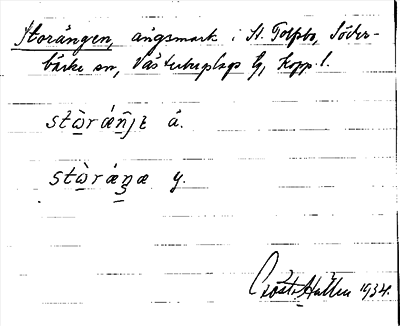 Storängen, ängsmark i St. Tolsbo, Söder-
bärke sn, Västerbergslags fg, Kopp. l.
stɷ̀ràńjɛ ä.
stɷ̀ráŋæ y.
Gösta Hallen 1934.